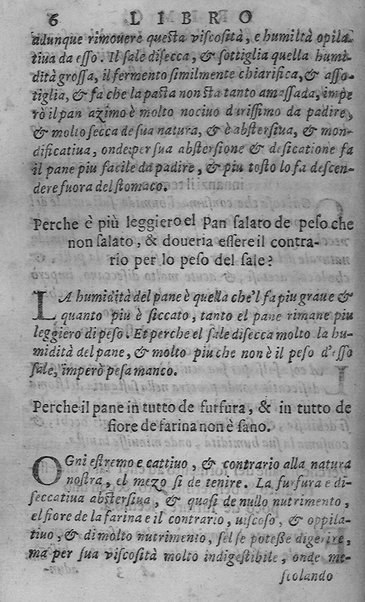 6 LIBRO
adunque rimouere questa viscosità, e humiltà opila-
tiua da esso. Il sale disecca, & sottiglia quella humi
dità grossa, il fermento similmente chiarifica, & asso-
tiglia, & fa che la pasta non sta tanto amassada, impe
rò il pan azimo è molto nociuo durissimo da padire,
& molto secca de sua natura, & è abstersiua, & mon-
dificatiua, onde per sua abstersione & desicatione fa
il pane piu facile da padire, & piu tosto lo fa descen-
dere fuora del stomaco.
Perche è più leggiero el Pan salato de peso che
non salato, & doueria essere il contra-
rio per lo peso del sale?
LA humidità del pane è quella che'l fa piu graue &
quanto piu è siccato, tanto el pane rimane piu
leggiero di peso. Et perche el sale disecca molto la hu-
midità del pane, & molto piu che non è il peso d'esso
sale, imperò pesa manco.
Perche il pane in tutto de furfura, & in tutto de
fiore de farina non è sano.
OGni estremo e cattiuo, & contrario alla natura
nostra, el mezo si de tenire. La furfura e di-
seccatiua abstersiua, & quasi de nullo nutrimento,
el fiore de la farina e il contrario, uiscoso, & oppila-
tiuo, & di molto nutrimento, se'l se potesse digerire,
ma per sua viscosità molto indigestibile, onde me-
scolando